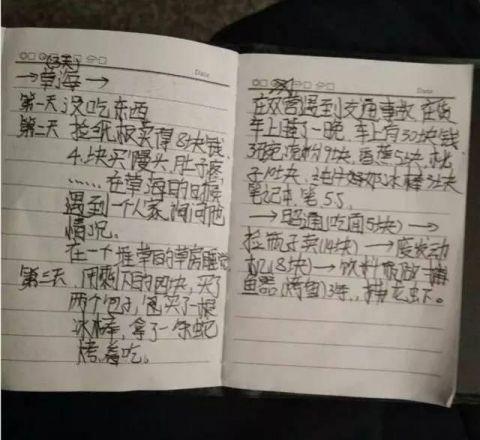 (5天)
→草海→
Date
第一天没吃东西
第二天 捡纸板买得8块钱.
4块买馒头,肚子疼
......在草海的时候
遇到一个人家询问他
情况。
在一个堆草的草房睡觉
第三天 用剩下的四块,买了
两个包子,买了一根
冰棒,拿了一条蛇
烤着吃。
Date
在双营遇到交通事故 在货
车上睡了一晚 车上有30块钱
炒粉9块 香蕉5块 桃
子 冰棒 块
笔记本、笔5.5.
→昭通(吃面5块)→
捡瓶子卖(14块)→废发动
机(8块)→饮料瓶放 捕
鱼器(烤鱼)3条,捕龙虾.